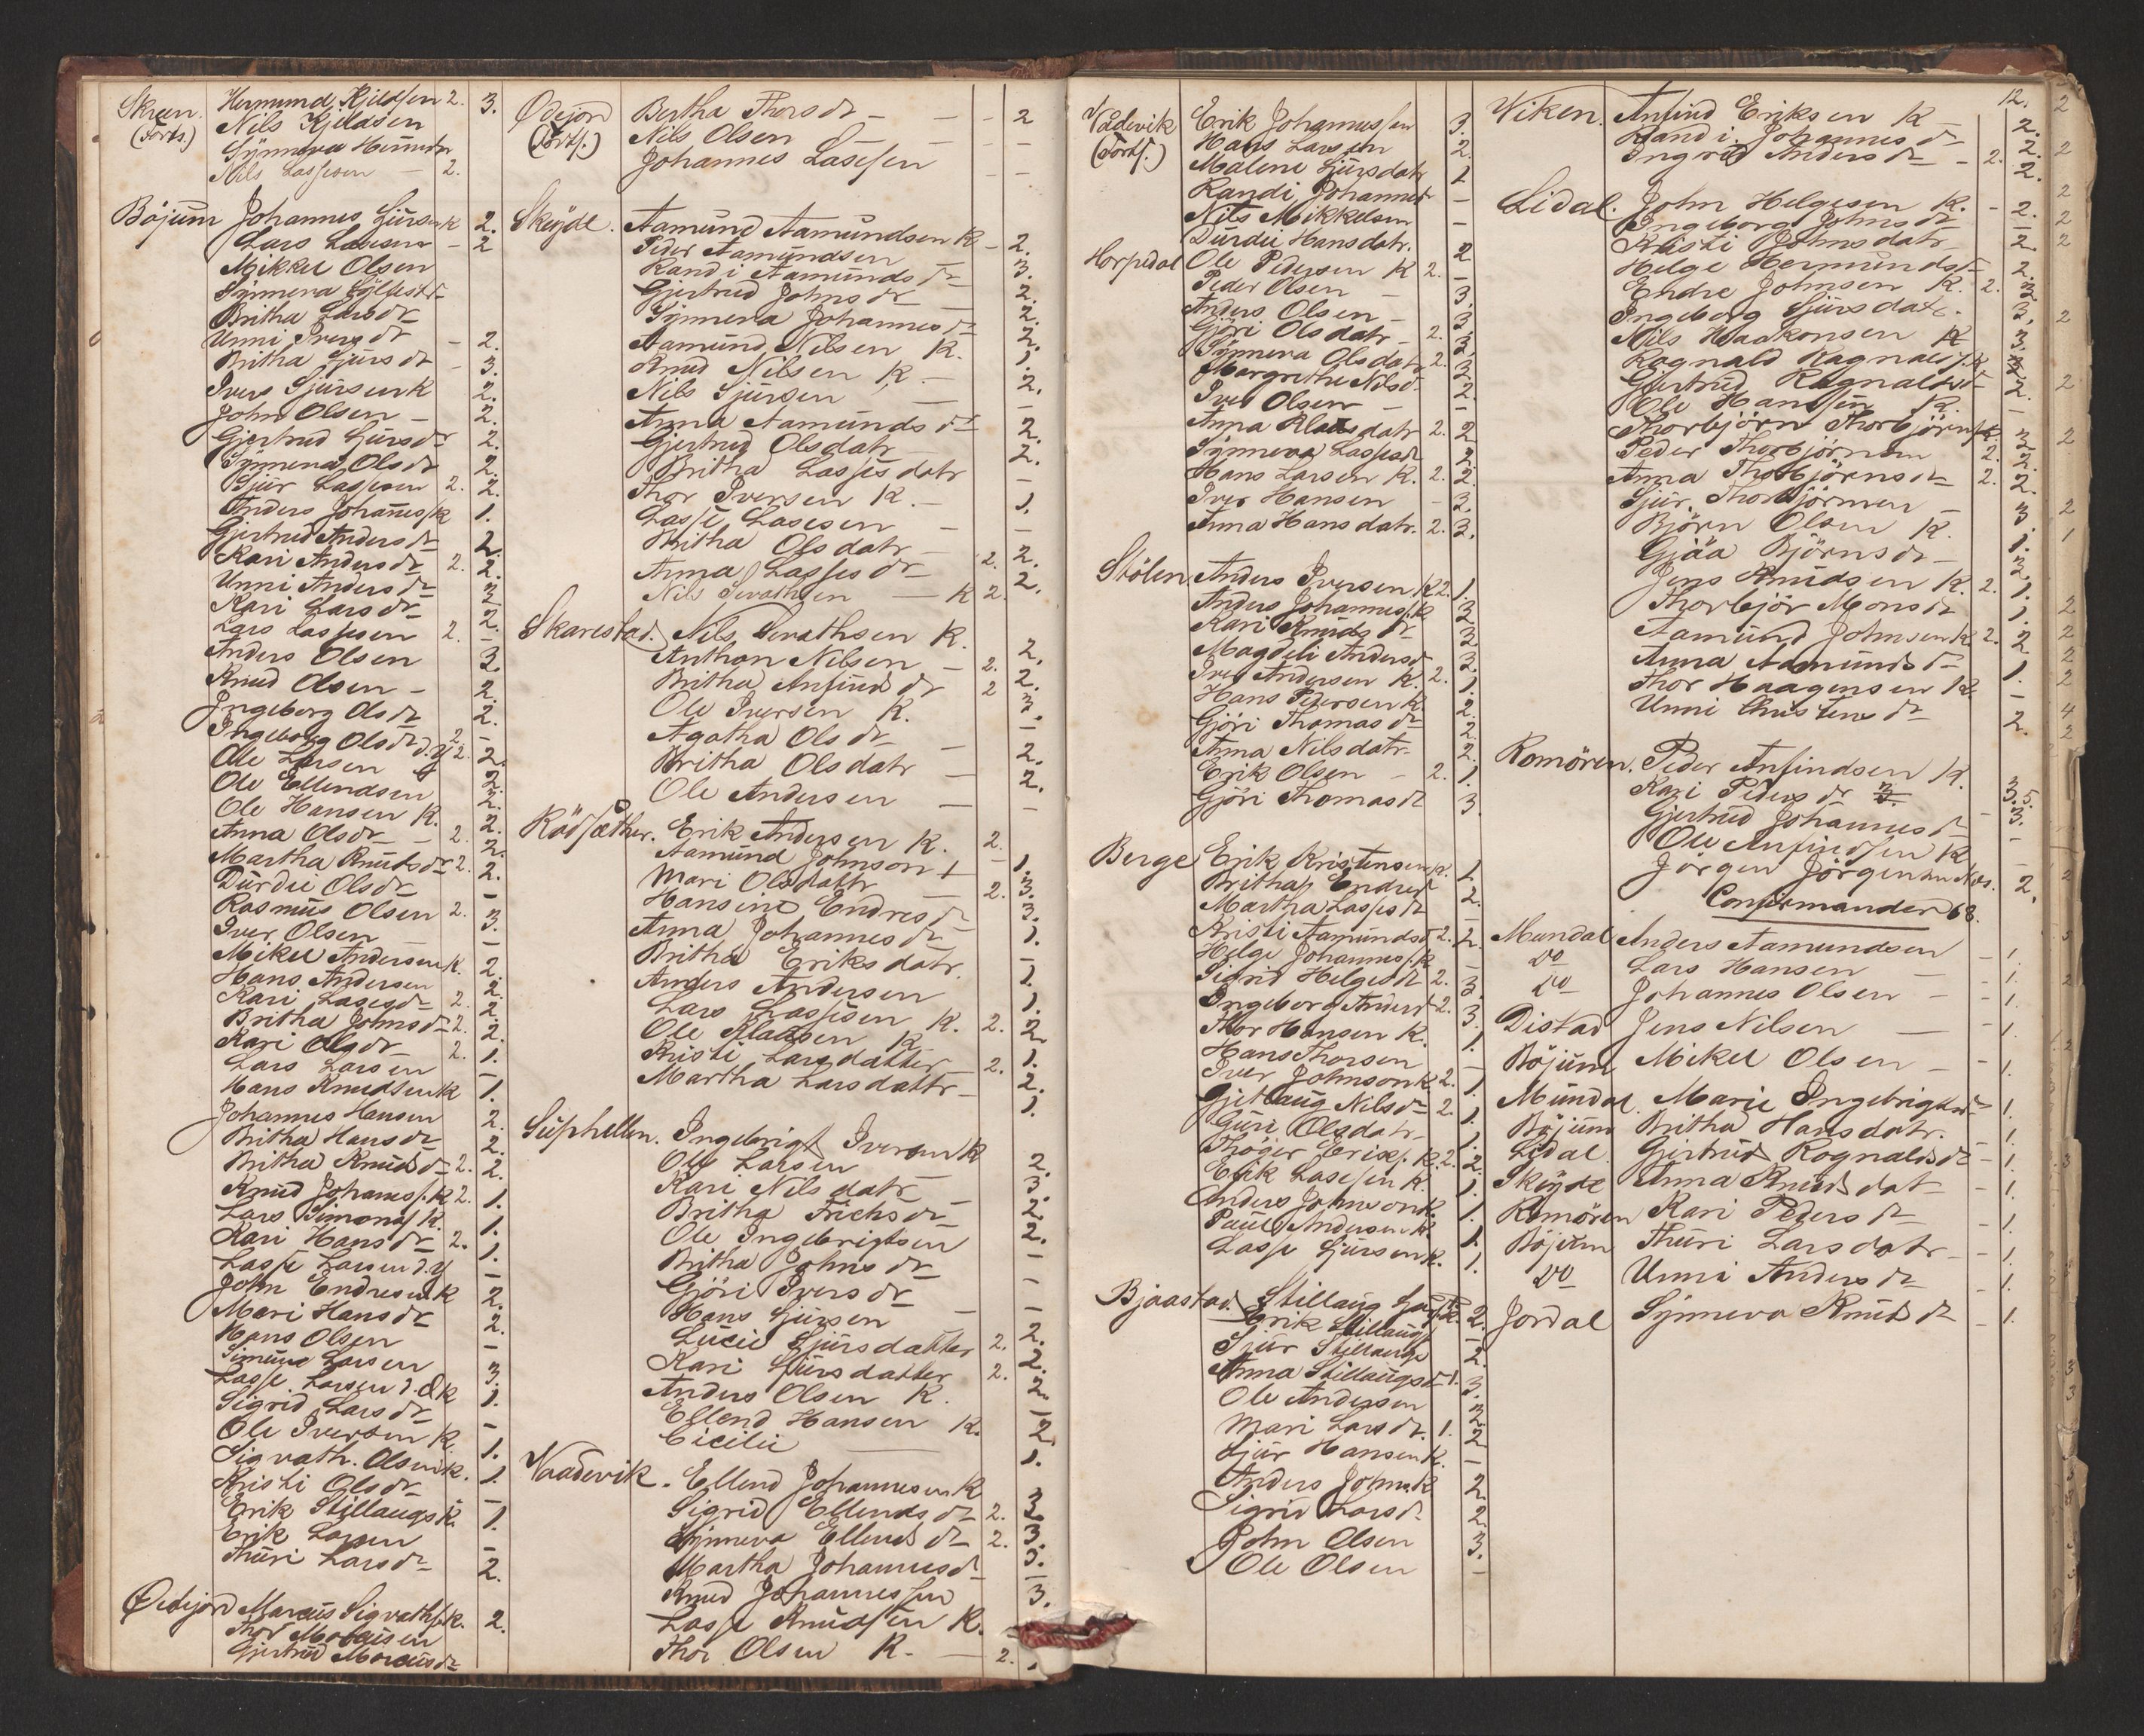 Skreen. Hermund Kjeldsen 2. 3.
(Forts.) Nils Kjeldsen
Synneva Hermdr
Nils Lassesen – 2.
Böjum Johannes Sjürsen K 2.
Lars Lassesen – 2
Mikkel Olsen
Synneva
Britha Larsdr
Unni Iversdr – 2.
Britha Sjürsdr – 3.
Iver Sjürsen K 2.
John Olsen – 2.
Gjertrud Sjürsdr 2.
Synneva Olsdr 2.
Sjür Lassesen 2. 2.
Anders Johanness K 1.
Gjertrud Andersdr 2.
Kari Andersdr 2. 2.
Unni Andersdr 3
Kari Larsdr 2.
Lars Lassesen 2. –
Anders Olsen 3.
Knud Olsen – 2.
Ingeborg Olsdr 2.
Ingeborg Olsdr d.y. 2 –
Ole Larsen 2. 2.
Ole Ellendsen 2.
Ole Hansen K. 2.
Anna Olsdr – 2. 2.
Martha Knudsdr 2. 2.
Dürdei Olsdr –
Rasmüs Olsen 2. 3.
Iver Olsen –
Mikel Andersen K. 2.
Hans Andersen 2.
Kari Lassesdr 2. 2.
Britha Johnsdr 2. 2.
Kari Olsdr 2. 1.
Lars Larsen –
Hans Knudsen K 1.
Johannes Hansen 2.
Britha Hansdr 2.
Britha Knudsdr 2. 2.
Knud Johaness. K 2. 1.
Lars Simons K. 1.
Kari Hansdr 2. 1.
Lasse Larsen d.y –
John Endresen K 2.
Mari Hansdr 2.
Hans Olsen –
Simün Larsen 3.
Lasse Larsen d. Æ K 1.
Sigrid Larsdr –
Ole Iversen K. 1.
Sigvath. Olsen K. 1.
Kristi Olsdr –
Erik Stillaugs K. 1.
Erik Larsen –
Thüri Larsdr 2.
Ødejord Marcüs Sigvaths K. 2.
Thor Marcüsen
Gjertrud Marcüsdr
Ødejord Bertha Thorsdr – – – 2
(Fortsf.) Nils Olsen – – –
Johannes Lassesen – –
Skeide. Aamund Aamundsen K – 2.
Peder Aamundsen 3.
Randi Aamundsdr 2.
Gjertrud Johnsdr 2.
Synneva Johannesdr 2.
Aamund Nilsen K. 1.
Knud Nilsen K. – 2.
Nils Sjürsen – –
Anna Aamundsdr 2.
Gjertrud Olsdatr 2.
Britha Lassesdatr –
Thor Iversen K. – 1.
Lasse Lassesen – –
Britha Olsdatr – 2. 2.
Anna Lassesdr 2.
Nils Sevathsen – K 2.
Skarestad. Nils Sevathsen K. 2.
Anthon Nilsen – 2. 2.
Britha Anfindsdr 2 3.
Ole Iversen K. –
Agatha Olsdr – 2.
Britha Olsdatr – 2.
Ole Andersen – –
Rödsæther. Erik Andersen K. 2.
Aamund Johnson + – 1.
Mari Olsdattr 2. 3.
Hansine Endresdr 3.
Anna Johannesdr 1.
Britha Eriksdatr. –
Anders Andersen 1.
Lars Lassesen K. 2. 2.
Ole Klausen K. 1.
Kristi Larsdatter – 2. 2.
Martha Larsdattr – 1.
Süphellen. Ingebrigt Iversen K 2.
Ole Larsen – 3.
Kari Nilsdatr – 2.
Britha Frichsdr 2.
Ole Ingebrigtsen –
Britha Johnsdr –
Gjöri Iversdr –
Hans Sjürsen – 2.
Lucie Sjürsdatter 2. 2.
Kari Sjürsdatter 2. 2.
Anders Olsen K. –
Ellend Hansen K. 2.
Cicilie – 1.
Vaadevik. Ellend Johannesen K 3.
Sigrid Ellendsdr 2. 3.
Synneva Ellendsdr 2. 3.
Martha Johannesdr –
Knud Johannessen 3.
Lasse Knudsen K.
Thor Olsen K. – 2.
Vådevik Erik Johannessen 3.
(Fortsf.) Hans Larsen 2.
Malene Sjürsdatr 1
Randi Johannesdr –
Nils Mikkelsen –
Dürdei Hansdatr. 2
Horpedal Ole Pedersen K 2. –
Peder Olsen – 3.
Anders Olsen – 3.
Gjöri Olsdatr – 2. 3.
Synneva Olsdatr 2. 3.
Margrethe Nilsd. 2.
Iver Olsen –
Anna Klausdatr 2. 2
Synneva Lassesdr 2
Hans Larsen K. 2. 2.
Iver Hansen – 3.
Anna Hansdatr. 2. 3.
Stölen Anders Iversen K 2. 1.
Anders Johanness. K 3
Kari Knudsdr 3
Magdeli Andersd 3.
Iver Andersen K. 2. 1.
Hans Pedersen K 2.
Gjöri Thomasdr 2.
Anna Nilsdatr 2.
Erik Olsen – 2. 1.
Gjöri Thomasdr 3.
Berge Erik Kristensen K. 1.
Britha Endresd 2.
Martha Lassesdr –
Kristi Aamundsd 2. 2.
Helge Johanness K –
Sigrid Helgesdr 2. 3.
Ingeborg Andersd 2. 3.
Thor Hansen K. 1.
Hans Thorsen –
Iver Johnson K. 2. 1.
Gjetlaug Nilsdr 2. 1.
Güri Olsdatr 1.
Thöger Eriks. K. 2. 2.
Erik Lassesen K. 1.
Anders Johnsen K. 1.
Paul Andersen K. 1.
Lasse Sjürsen K. 1.
Bjaastad. Stillaug K. 2.
Erik Stillaugs –
Sjür Stillaugs 2.
Anna Stillaugsd 1. 3.
Ole Andersen 3.
Mari Larsdr. 1. 2.
Sjür Hansen K. –
Anders Johns K 2.
Sigrid Larsd. 2.
John Olsen 3.
Ole Olsen –
12.
Viken. Anfind Eriksen K – 2.
Randi Johannesdr 2.
Ingrid Andersdr – 2. 2.
Lidal. John Helgesen K. – 2.
Ingeborg Johnsdr –
Kristi Johnsdatr – 2.
Helge Hermundsdr 2.
Endre Johnsen K. 2. 3.
Ingeborg Sjürsdatr. 3.
Nils Haakonsen K 3.
Ragnald Ragnalds. K 2.
Gjertrud Ragnaldsdr 2.
Ole Hanssen K. –
Thorbjörn Thorbjörns K. 3.
Peder Thorbjörnsen 2. 2.
Anna Thorbjörnsdr 2. 2.
Sjür Thorbjörnsen – 3.
Björn Olsen K. 1.
Gjäa Björnsdr – 3.
Jens Knudsen K. 2. 1.
Thorbjör Monsdr 1.
Aamund Johnsen K 2. 2.
Anna Aamundsdr 1.
Thor Haagensen K. –
Unni Christensdr 2.
Romören. Peder Anfindsen K. 3.5.
Kari Pedersdr 3. – 3.
Gjertrud Johannesdr –
Ole Anfindsen K –
Jörgen Jörgensen Næs. 2.
Confirmander 68.
Mundal Anders Aamundsen – 1.
do Lars Hansen – – 1.
do Johannes Olsen – – 1.
Distad Jens Nilsen – 1.
Böjum Mikel Olsen – – 1.
Mundal Marie Ingebrigtsdr 1.
Böjum Britha Hansdatr. – 1.
Lidal Gjertrud Rognaldsdr – 1.
Skeyde Anna Knudsdat – 1.
Romören Kari Pedersdr – 1.
Böjum Thuri Larsdatr – 1.
do Unni Andersdr – 1.
Jordal Synneva Knudsdr – 1.